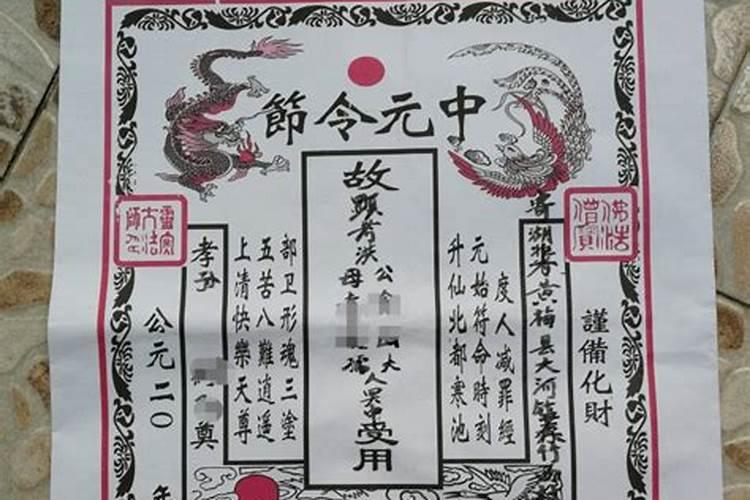 中元令節
謹備化財
佛法僧寶
寄湖北省黄梅县大河镇
度人減罪經
元始符命時刻
升仙北都寒池
故
顯考洪公
大
母
孺人冥中
受用
部卫形魂三塗
五苦八難逍遥
上清快樂天尊
孝孙
奠
靈寶大法師印
公元二〇
年